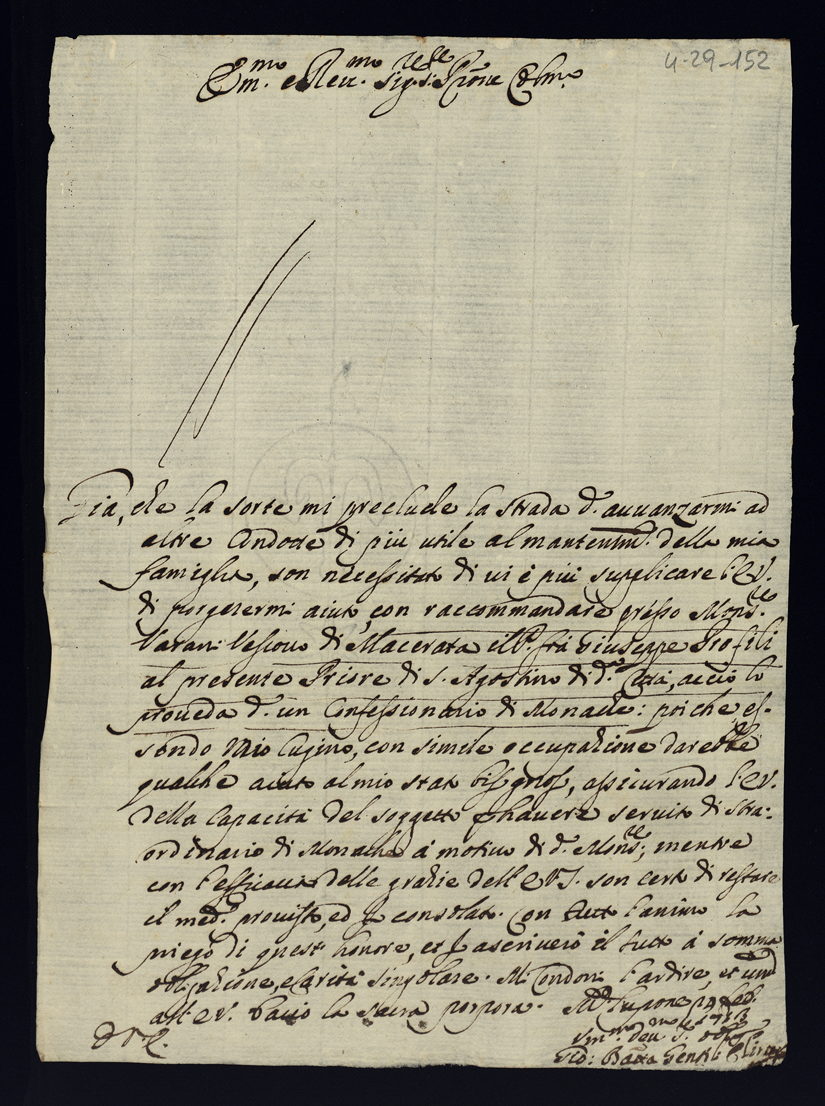 4-29-152
Em.mo e Reu.mo Sig.re Sig.re Pione Colmo
Gia, che la sorte mi preclude la strada d' auuanzarmi ad
altre Condotte di più utile al mantenim.to della mia
famiglia, son necessitato di uie più supplicare l'E.V.
di porgermi aiuto, con raccommandare presso Mons.re
Varani Vescouo di Macerata il P. frà Giuseppe Profili
al presente Priore di S. Agostino di d.ta Città, acciò lo
proueda d' un Confessionario di Monache: poiche es-
sendo Mio Cugino, con simile occupazione darebbe
qualche aiuto al mio stato bisognoso, assicurando l'E.V.
della Capacità del soggetto p hauere seruito di Stra:
ordinario di Monache à motiuo di d.o Mons.re; mentre
con l'efficacia delle grazie dell'E.V. son certo di restare
il med.o prouisto, ed io consolato. Con tutto l'animo la
priego di questo honore, et io ascriuerò il tutto à somma
obligazione, e Carità singolare. Mi Condoni l'ardire, et
all'E.V. bacio la sacra porpora.
Gio: Batta Gentili